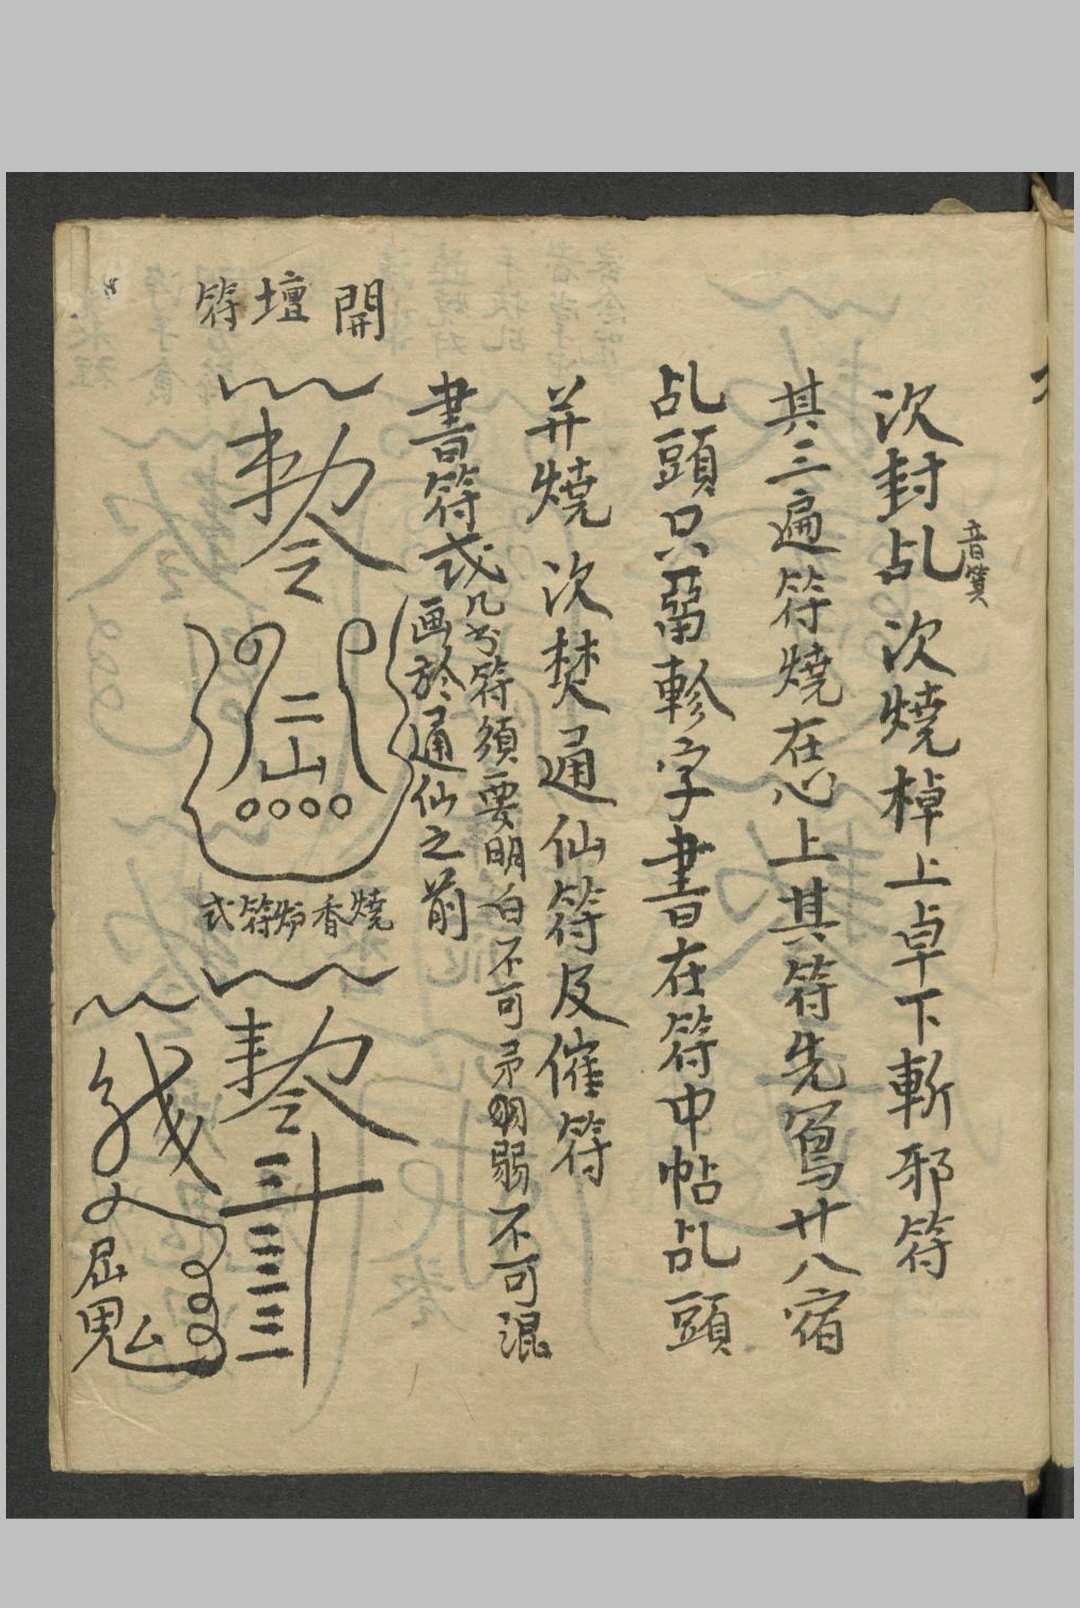 次封乩音箕次燒棹上卓下斬邪符
其三遍符燒在心上其符先寫廿八宿
乩頭只畱軫字書在符中帖乩頭
并燒次焚通仙符及催符
書符式
凡书符須要明白不可弱不可混
画於通仙之前
開壇符
勅令
二山
燒香炉符式
勅令
三三三三
屈鬼